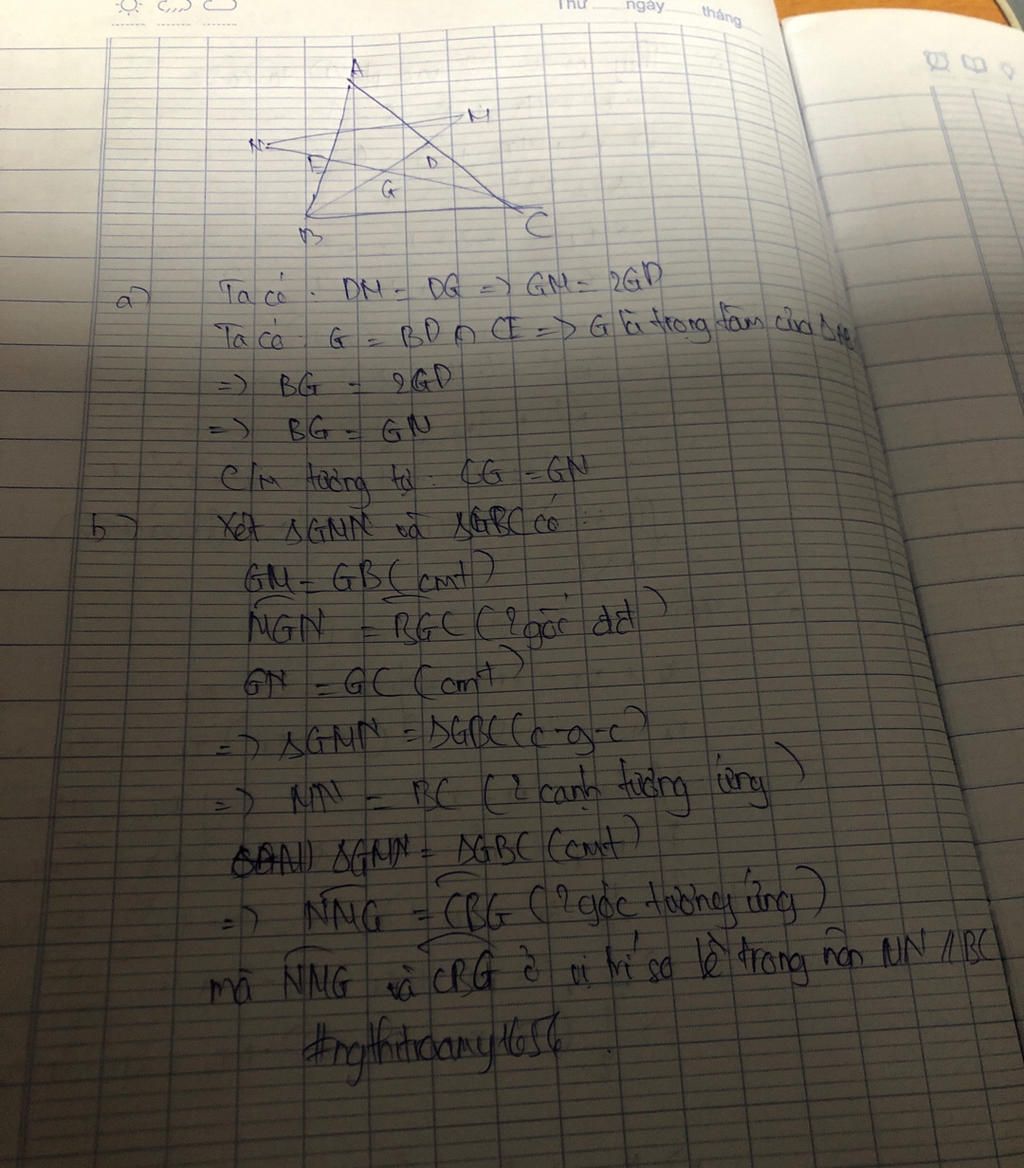 Thứ ngày tháng
A
M
N
E
D
G
B
C
a) Ta có: DM = DG => GM = 2GD
Ta có: G = BD ∩ CE => G là trọng tâm của Δ
=> BG = 2GD
=> BG = GM
C/m tương tự: CG = GN
b) Xét ΔGMN và ΔGBC có:
GM = GB (cmt)
MGN = BGC (2 góc đđ)
GN = GC (cmt)
=> ΔGMN = ΔGBC (c-g-c)
=> MN = BC (2 cạnh tương ứng)
ΔGMN = ΔGBC (cmt)
=> NMG = CBG (2 góc tương ứng)
mà NMG và CBG ở vị trí so lê trong nên MN // BC